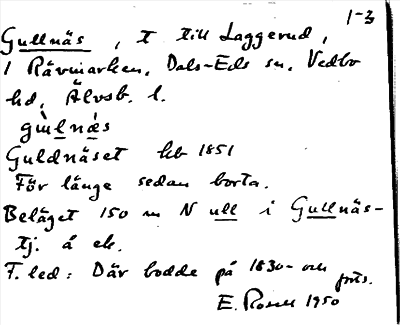 1-3
Gullnäs, t till Laggerud,
i Rävmarken, Dals-Eds sn, Vedbo
hd, Älvsb. l.
gùlnǽs
Guldnäset hb 1851
För länge sedan borta.
Beläget 150 m N ull i Gullnäs-
tj. å ek.
F. led: Där bodde på 1830- och
forts.
E. Rosell 1950